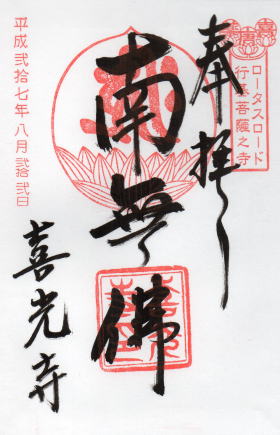 奉拝
ロータスロード
行基菩薩之寺
南無佛
平成弐拾七年八月弐拾弐日
喜光寺